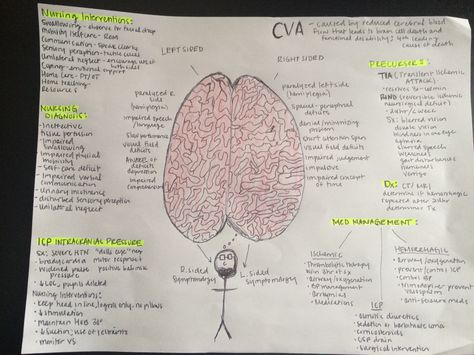 Nursing Interventions:
Swallowing - observe for facial droop
Mobility/Self care - ROM
Communication - speak clearly
Sensory perception - tactile cues
Unilateral neglect - encourage use of both sides
Coping - emotional support
Home care - PT/OT
Home training
Resources
NURSING DIAGNOSIS:
- ineffective tissue perfusion
- impaired swallowing
- impaired physical mobility
- self-care deficit
- impaired verbal communication
- urinary incontinence
- disturbed sensory perception
- unilateral neglect
ICP INTRACRANIAL PRESSURE
SX: severe HTN
"dolls eye" neg
- bradycardia
motor response
- widened pulse pressure
positive babinski
- ↓ LOC, pupils dilated
Nursing Interventions:
- keep head in line, logroll only, no pillows
- ↓ stimulation
- maintain HOB 30°
- ↓ suction, ↓ use of restraints
- monitor VS
LEFT SIDED
paralyzed R. side (hemiplegia)
impaired speech/language
slow performance
visual field deficits
aware of deficits
depression
impaired comprehension
RIGHT SIDED
paralyzed left side (hemiplegia)
spatial-perceptual deficits
denial/minimizing problem
short attention span
visual field deficits
impaired judgement
impulsive
impaired concept of time
R. sided symptomology
L. sided symptomology
CVA - caused by reduced cerebral blood
flow that leads to brain cell death and
functional disability; 4th leading
cause of death
PRECURSORS:
TIA (Transient Ischemic ATTACK)
- resolves
RIND (reversible ischemic neurological deficit)
SX: blurred vision
double vision
blindness in one eye
aphasia
slurred speech
weakness
gait disturbance
numbness
vertigo
DX: CT/MRI
determine if hemorrhagic
repeated after 24hr
determines Tx
MED MANAGEMENT:
Ischemic
Thrombolytic therapy
airway/oxygenation
BP management
Medications
HEMORRHAGIC
- airway/oxygenation
- prevent/control ICP
- control BP
- nimodipine prevent vasospasm
- anti-seizure meds
ICP
- osmotic diuretics
- sedation or barbiturate coma
- corticosteroids
- CSF drain
- surgical intervention